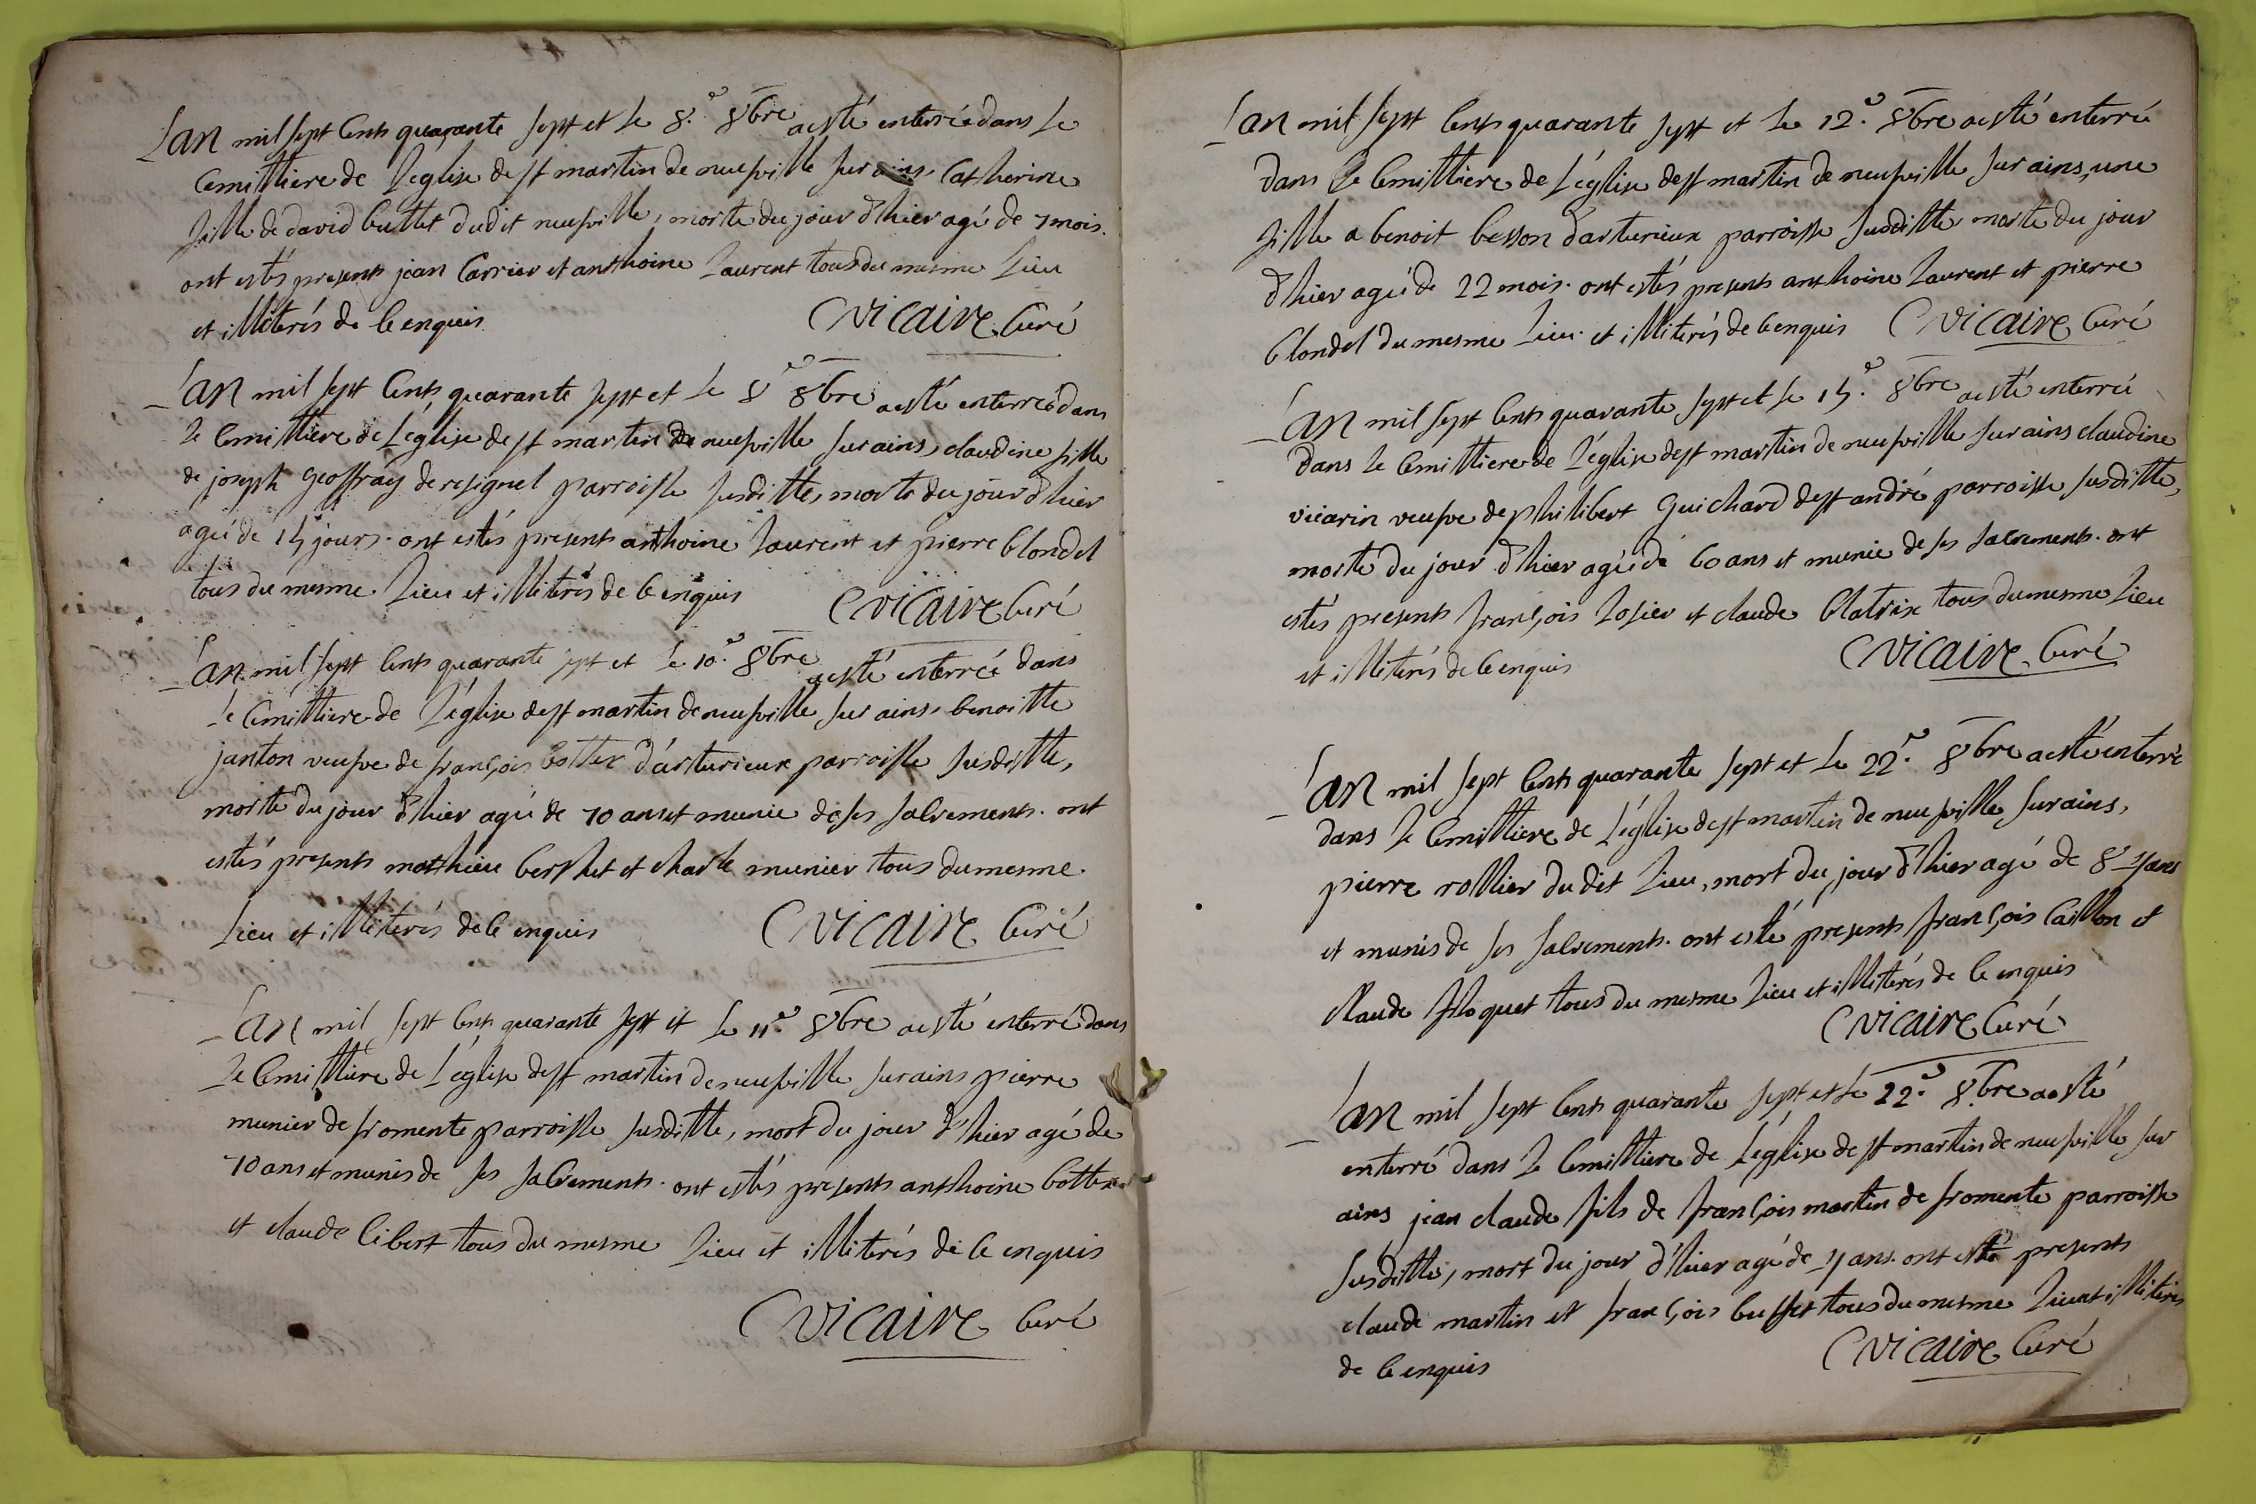 Lan mil sept cents quarante sept et le 8.e 8bre a esté enterrée dans le
cemittiere de l'eglise de st martin de neufville sur ains, catherine
fille de david buttet dudit neufville, morte du jour d'hier agé de 7 mois.
ont estés presents jean carrier et anthoine laurent tous du mesme lieu
et illiterés de ce enquis
Vicaire Curé
Lan mil sept cents quarante sept et le 8e 8bre a esté enterreé dans
le cemittiere de l'eglise de st martin de neufville sur ains, claudine fille
de joseph geoffray de resignel parroisse susditte, morte du jour d'hier
agée de 15 jours. ont estés presents anthoine laurent et pierre blondel
tous du mesme lieu et illiterés de ce enquis
Vicaire Curé
Lan mil sept cents quarante sept et le 10.e 8bre a esté enterrée dans
le cemittiere de l'eglise de st martin de neufville sur ains, benoitte
janton veufve de françois bottex d'arturieux parroisse susditte,
morte du jour d'hier agée de 70 ans et munie de ses sacrements. ont
estés presents mathieu berthet et charle munier tous du mesme
lieu et illiterés de ce enquis
Vicaire Curé
Lan mil sept cents quarante sept et le 11.e 8bre a esté enterré dans
le cemittiere de l'eglise de st martin de neufville sur ains pierre
munier de fromente parroisse susditte, mort du jour d'hier agé de
70 ans et munis de ses sacrements. ont estés presents anthoine bottex
et claude libert tous du mesme lieu et illiterés de ce enquis
Vicaire Curé
Lan mil sept cents quarante sept et le 12.e 8bre a esté enterrée
dans le cemittiere de l'église de st martin de neufville sur ains, une
fille a benoit besson d'arturieux parroisse susditte morte du jour
d'hier agée de 22 mois. ont estés presents anthoine laurent et pierre
blondel du mesme lieu et illiterés de ce enquis
Vicaire Curé
Lan mil sept cents quarante sept et le 15.e 8bre a esté enterrée
dans le cemittiere de l'église de st martin de neufville sur ains claudine
vicarin veufve de philibert guichard de st andré parroisse susditte,
morte du jour d'hier agée de 60 ans et munie de ses sacrements. ont
estés presents françois losier et claude blatrix tous du mesme lieu
et illiterés de ce enquis
Vicaire Curé
Lan mil sept cents quarante sept et le 22.e 8bre a esté enterré
dans le cemittiere de l'église de st martin de neufville sur ains,
pierre rollier dudit lieu, mort du jour d'hier agé de ans
et munis de ses sacrements. ont esté presents françois caillon et
claude floquet tous du mesme lieu et illiterés de ce enquis
Vicaire Curé
Lan mil sept cents quarante sept et le 22.e 8bre a esté
enterré dans le cemittiere de l'église de st martin de neufville sur
ains jean claude fils de françois martin de fromente parroisse
susditte, mort du jour d'hier agé de 4 ans. ont esté presents
claude martin et françois buffet tous du mesme lieu et illiterés
de ce enquis
Vicaire Curé